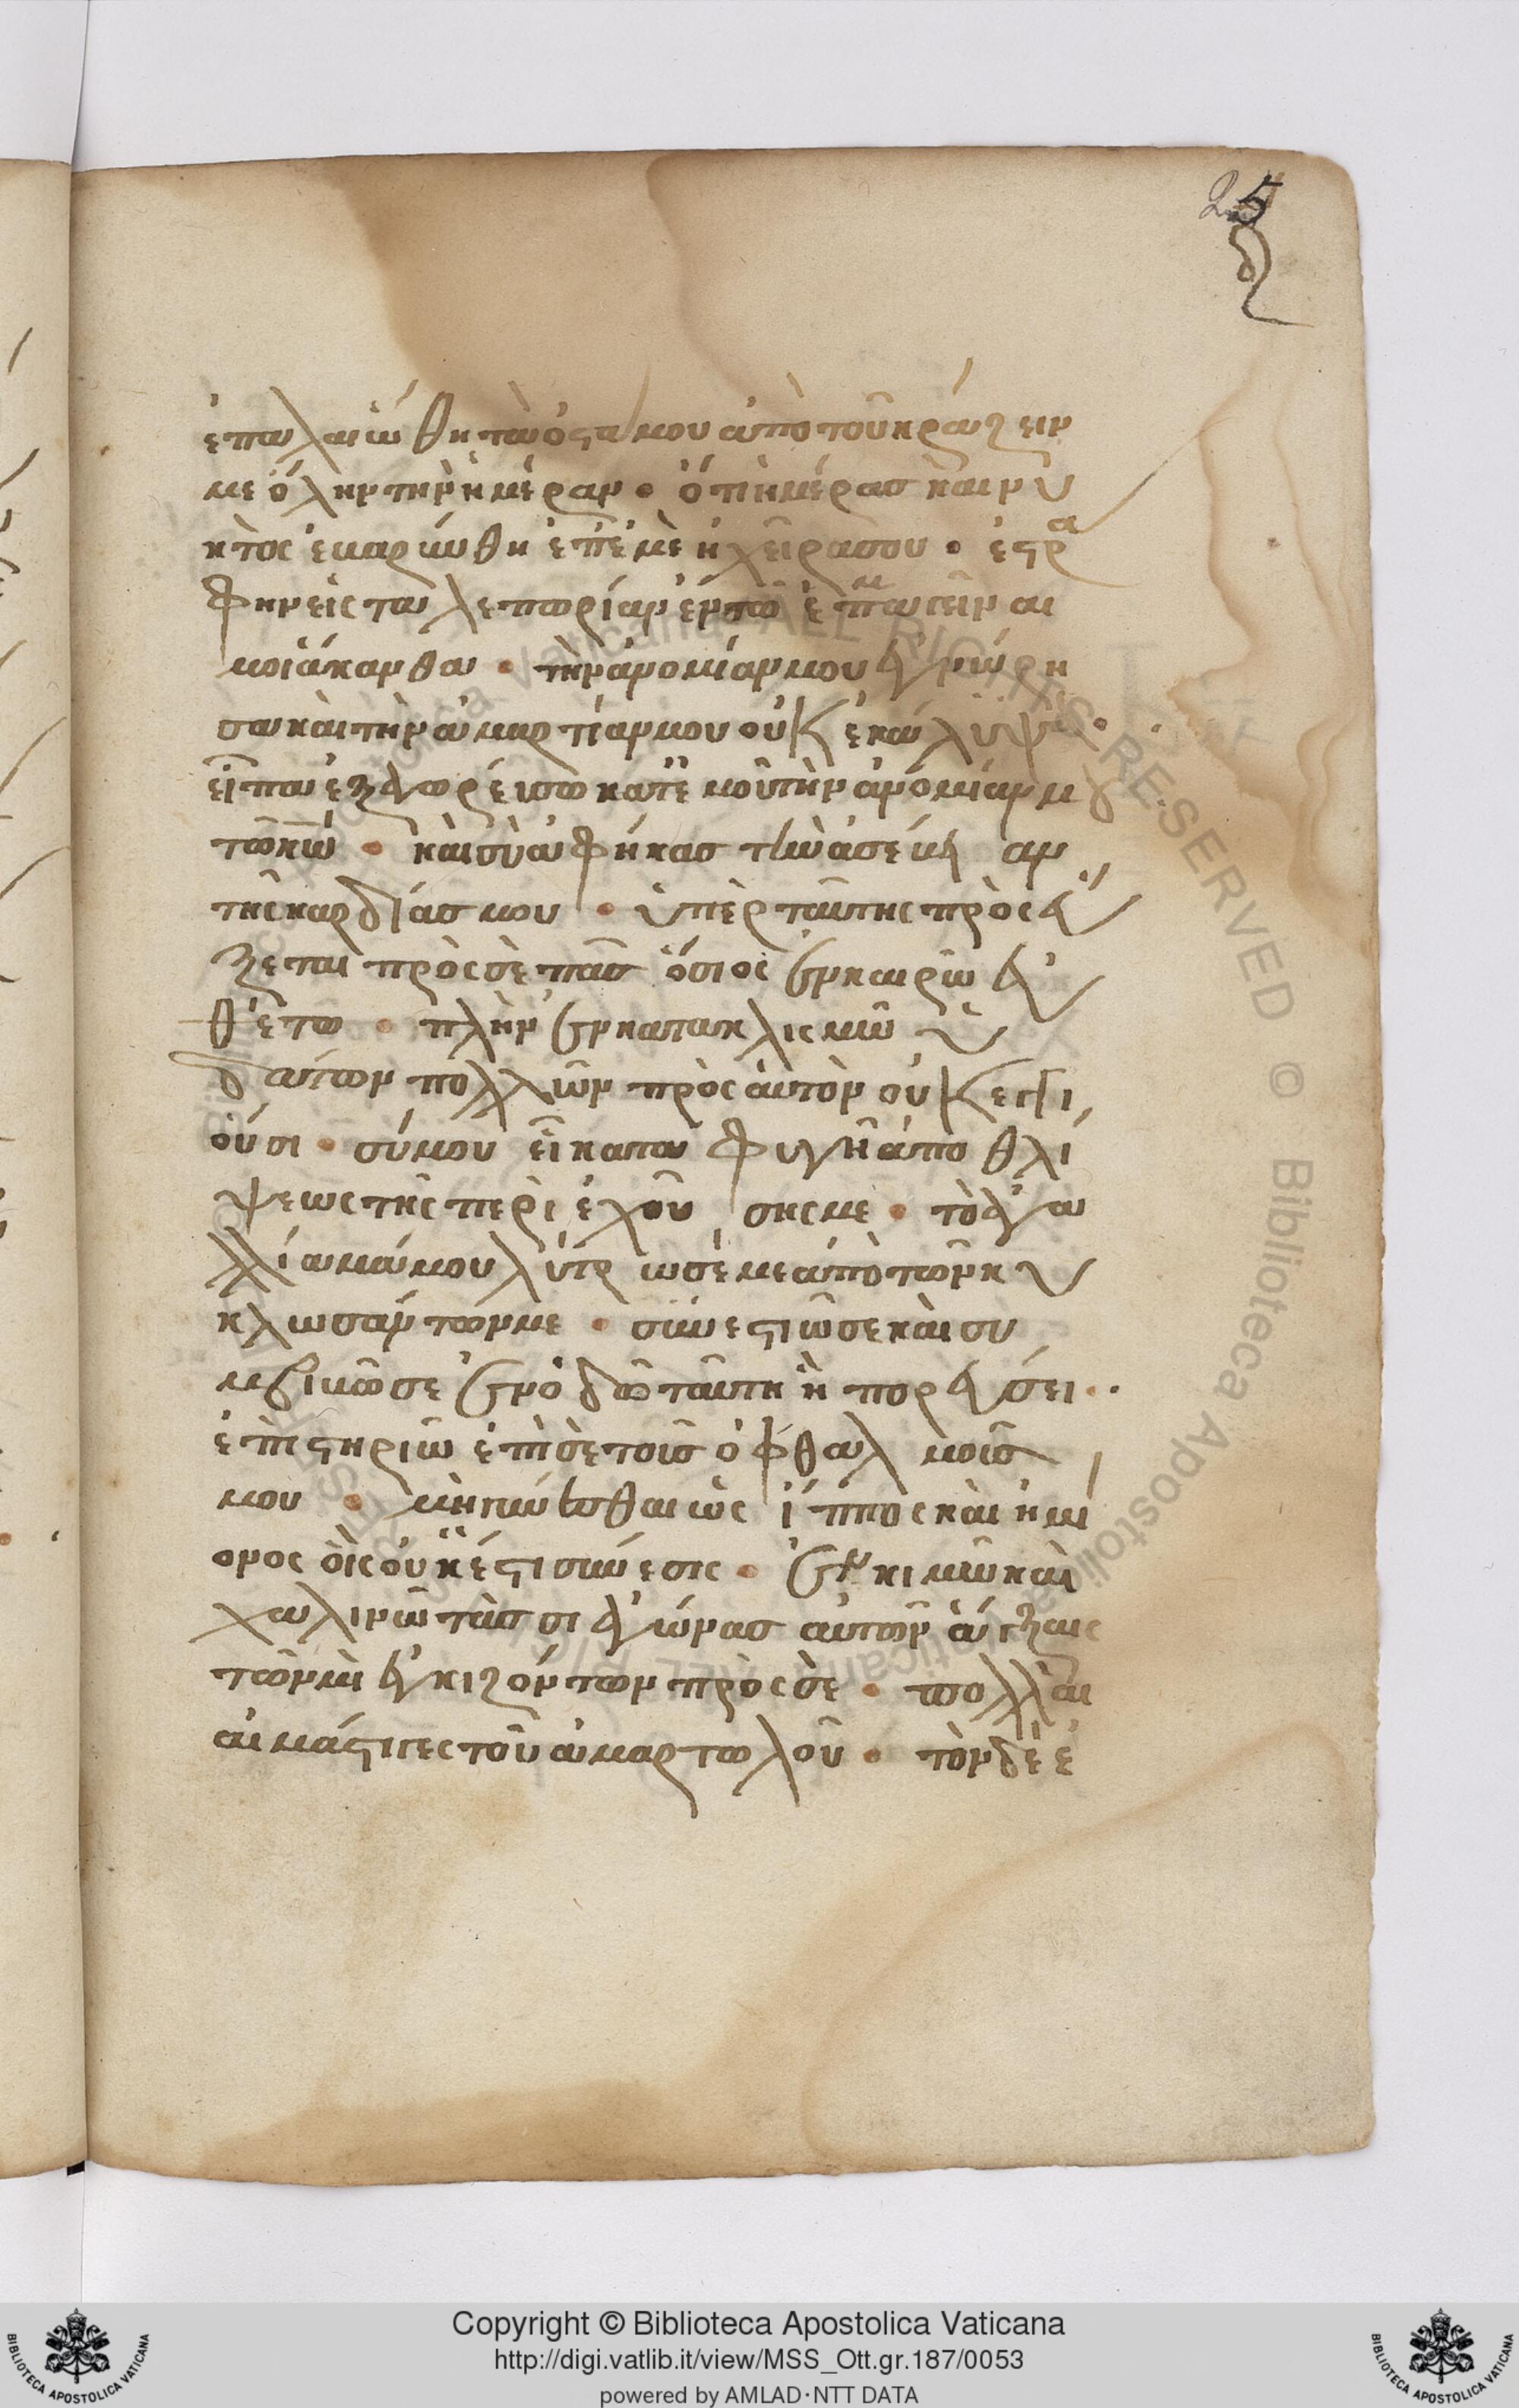 25
ἐπαλαιώθη τὰ ὀστᾶ μου ἀπὸ τοῦ κράζειν
με ὅλην τὴν ἡμέραν · ὅτι ἡμέρας καὶ νυ
κτὸς ἐβαρύνθη ἐπ' ἐμὲ ἡ χεῖρα σου · ἐστρά
φην εἰς ταλεπωρίαν ἐν τῶ ἐμπαγεῖναι
μοι ἄκανθα · τὴν ἀνομίαν μου ἐγνώρη
σα καὶ τὴν ἁμαρτίαν μου οὐκ ἐκάλυψα ·
εἶπα ἐξαγωρεύσω κατ' ἐμοῦ τὴν ἀνομίαν μου
τῶ κω · καὶ σὺ ἀφήκας τὴν ἀσέβειαν
τῆς καρδίας μου · ὑπὲρ ταύτης προσεύ
ξεται πρὸς σὲ πᾶς ὅσιος ἐν καιρῶ εὐ
θέτω · πλὴν ἐν κατακλισμῶ ὑ
δάτων πολλῶν πρὸς αὐτὸν οὐκ εγγι
οῦσι · σύ μου εἶ καταφυγῆ ἀπὸ θλί
ψεως τῆς περὶ ἐχούσης με · τὸ ἀγα
λλίαμά μου λύτρωσέ με ἀπὸ τῶν κυ
κλωσάντων με · συνετιῶ σε καὶ συ
μβιβῶ σε ἐν ὁδῶ ταύτη ἧ πορεύσει ··
ἐπιστηριῶ ἐπὶ σὲ τοὺς ὀφθαλμούς
μου · μὴ γίνεσθαι ὡς ἵππος καὶ ἡμί
ονος οἷς οὐκ ἔστι σύνεσις · ἐν κιμῶ καὶ
χαλινῶ τὰς σιαγώνας αὐτῶν ἄγξαις
τῶν μὴ ἐγκιζόντων πρὸς σὲ · πολλαὶ
αἱ μάστιγες τοῦ ἁμαρτωλοῦ · τὸν δὲ ἐ
ALL RIGHTS RESERVED © Biblioteca Apostolica Vaticana
Copyright © Biblioteca Apostolica Vaticana
http://digi.vatlib.it/view/MSS_Ott.gr.187/0053
powered by AMLAD·NTT DATA
BIBLIOTECA APOSTOLICA VATICANA
BIBLIOTECA APOSTOLICA VATICANA